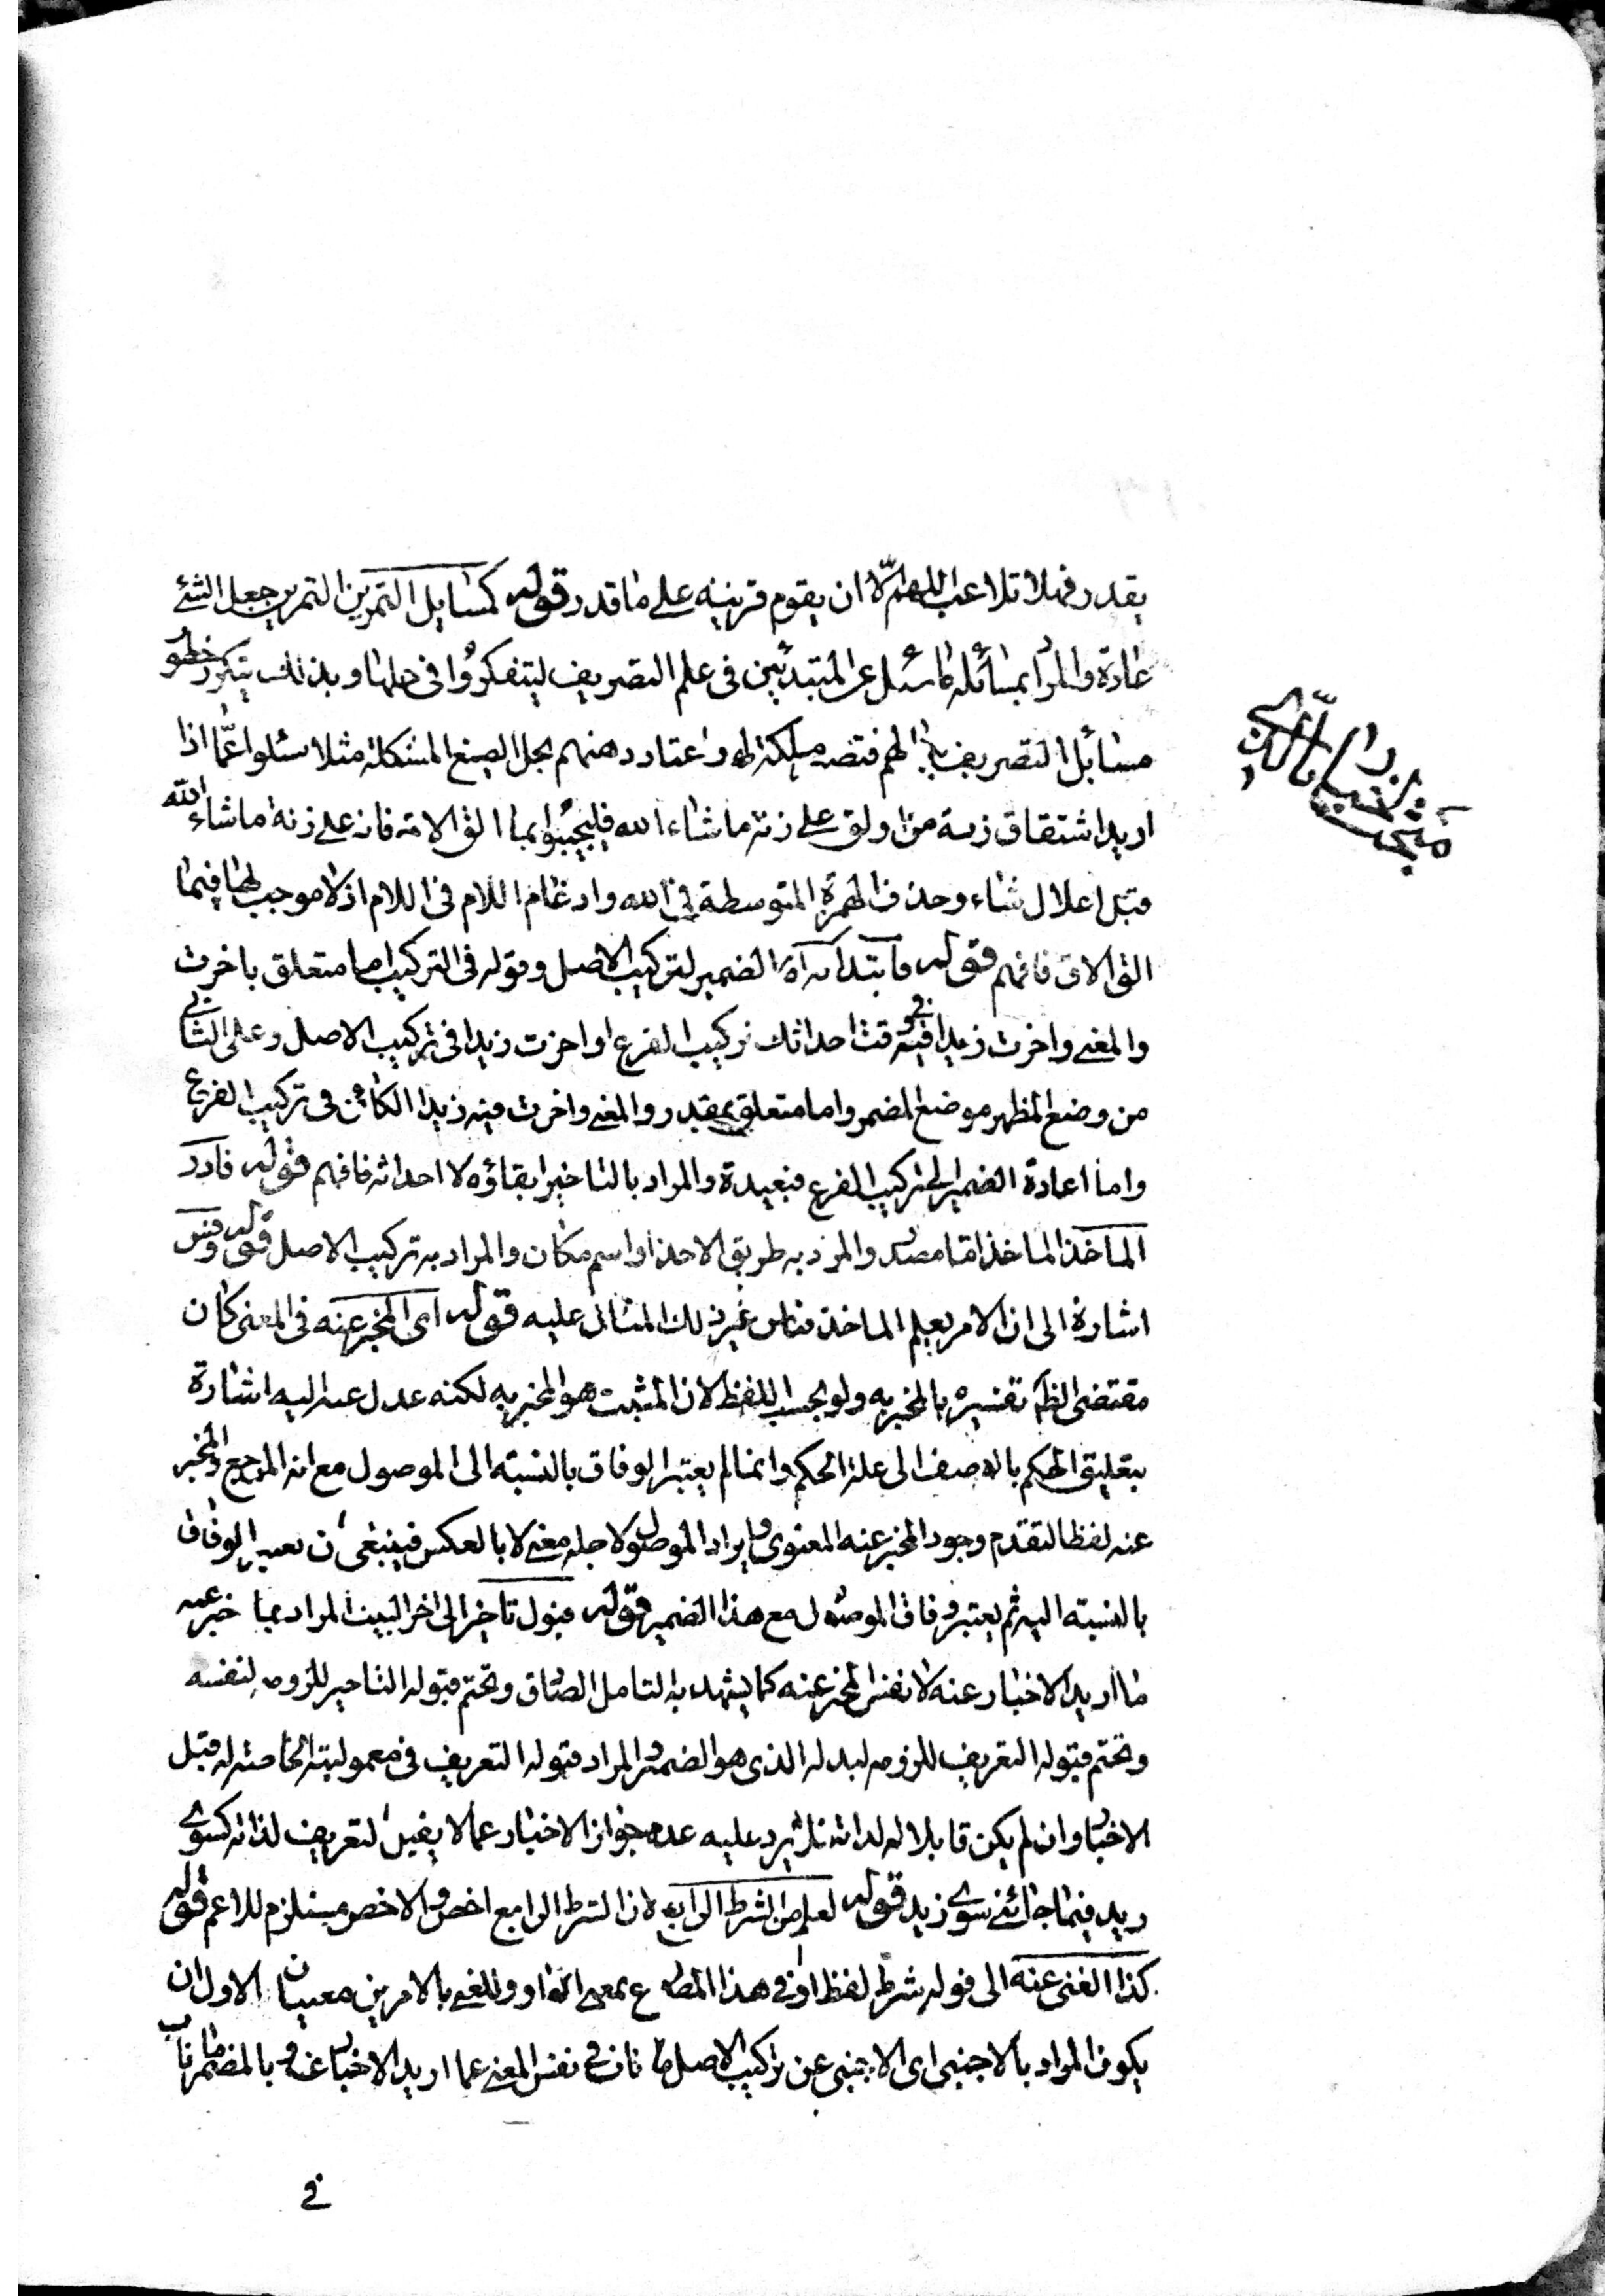 يقدر فهلا تلاعب اللهم الا ان يقوم قرينه على ما قدر قوله كمسايل التمرين التمرين جعل الشئ
عادة والمراد بمسائله ما سئل عن المبتدئين فى علم التصريف ليتفكروا فى حلها وبذلك يتكرر خطو
مسائل التصريف لهم فتصير ملكة لهم واعتاد ذهنهم بحل الصيغ المشكلة مثلا سئلوا عما اذا
اريد اشتقاق زنة من اولق على زنة ما شاء الله فليجيبوا بما الق الاته فانه على زنة ما شاء الله
قبل اعلال شاء وحذف الهمزة المتوسطة فى الله وادغام اللام فى اللام اذ لا موجب لها فيما
الق الاق فافهم قوله الضمير لتركيب الاصل وقوله فى التركيب اما متعلق باخرت
والمعنى واخرت زيدا فيه وقت احداثك تركيب الفرع او اخرت زيدا فى تركيب الاصل وعلى الثانى
من وضع المظهر موضع المضمر واما متعلق بمقدر والمعنى واخرت فيه زيدا الكائن فى تركيب الفرع
واما اعادة الضمير الى تركيب الفرع فبعيدة والمراد بالتاخير ابقاؤه لا احداثه فافهم قوله فادر
الماخذ الماخذ اما مصدر والمراد به طريق الاخذ او اسم مكان والمراد به تركيب الاصل قوله وقس
اشارة الى ان الامر بعلم الماخذ قياس غير ذلك المثال عليه قوله اى المخبر عنه فى المعنى كان
مقتضى الظم تفسيره بالمخبر به ولو بحسب اللفظ لان المثبت هو المخبر به لكنه عدل عنه اليه اشارة
بتعليق الحكم بالوصف الى علة الحكم وانما لم يعتبر الوفاق بالنسبة الى الموصول مع انه المرجع والمخبر
عنه لفظا لتقدم وجود المخبر عنه المعنوى وايراد الموصول لاجله معنى لا بالعكس فينبغى ان يعتبر الوفاق
بالنسبة اليه ثم يعتبر وفاق الموصول مع هذا الضمير قوله قبول تاخير الى اخر البيت المراد بما خبر عنه
ما اريد الاخبار عنه لا نفس المخبر عنه كما يشهد به التامل الصادق وتحتم قبوله التاخير للزومه لنفسه
وتحتم قبوله التعريف للزومه لبدله الذى هو الضمير والمراد قبوله التعريف فى معموليته الخاصة له قبل
الاخبار وان لم يكن قابلا له لذاته فلا يرد عليه عدم جواز الاخبار عما لا يقبل التعريف لذاته كسوى
زيد فيما جائنى سوى زيد قوله لعلم من الشرط الرابع لان الشرط الرابع اخص والاخص مستلزم للاعم قوله
كذا الغنى عنه الى قوله شرط لفظ او فى هذا المصرع بمعنى الواو وللغنى بالامرين معنيان الاول ان
يكون المراد بالاجنبى اى الاجنبى عن تركيب الاصل ما ناب فى نفس المعنى عما اريد الاخبار عنه وبالمضمر ما ناب
فى